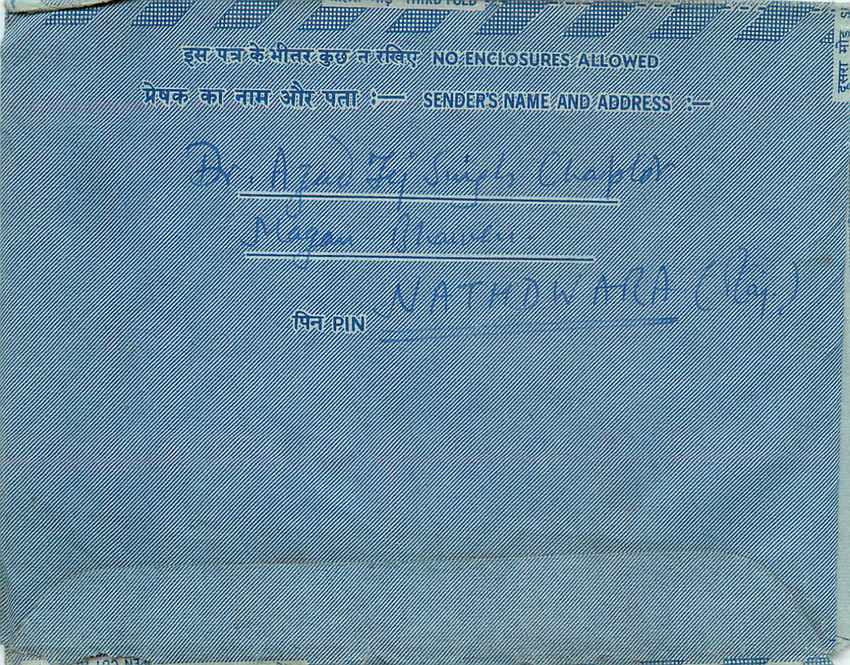 THIRD FOLD
इस पत्र के भीतर कुछ न रखिए NO ENCLOSURES ALLOWED
दूसरा मोड़
प्रेषक का नाम और पता :— SENDER'S NAME AND ADDRESS :—
Dr. Azad Tej Singh Chaplot
Magan Bhawan.
NATHDWARA (Raj.)
पिन PIN